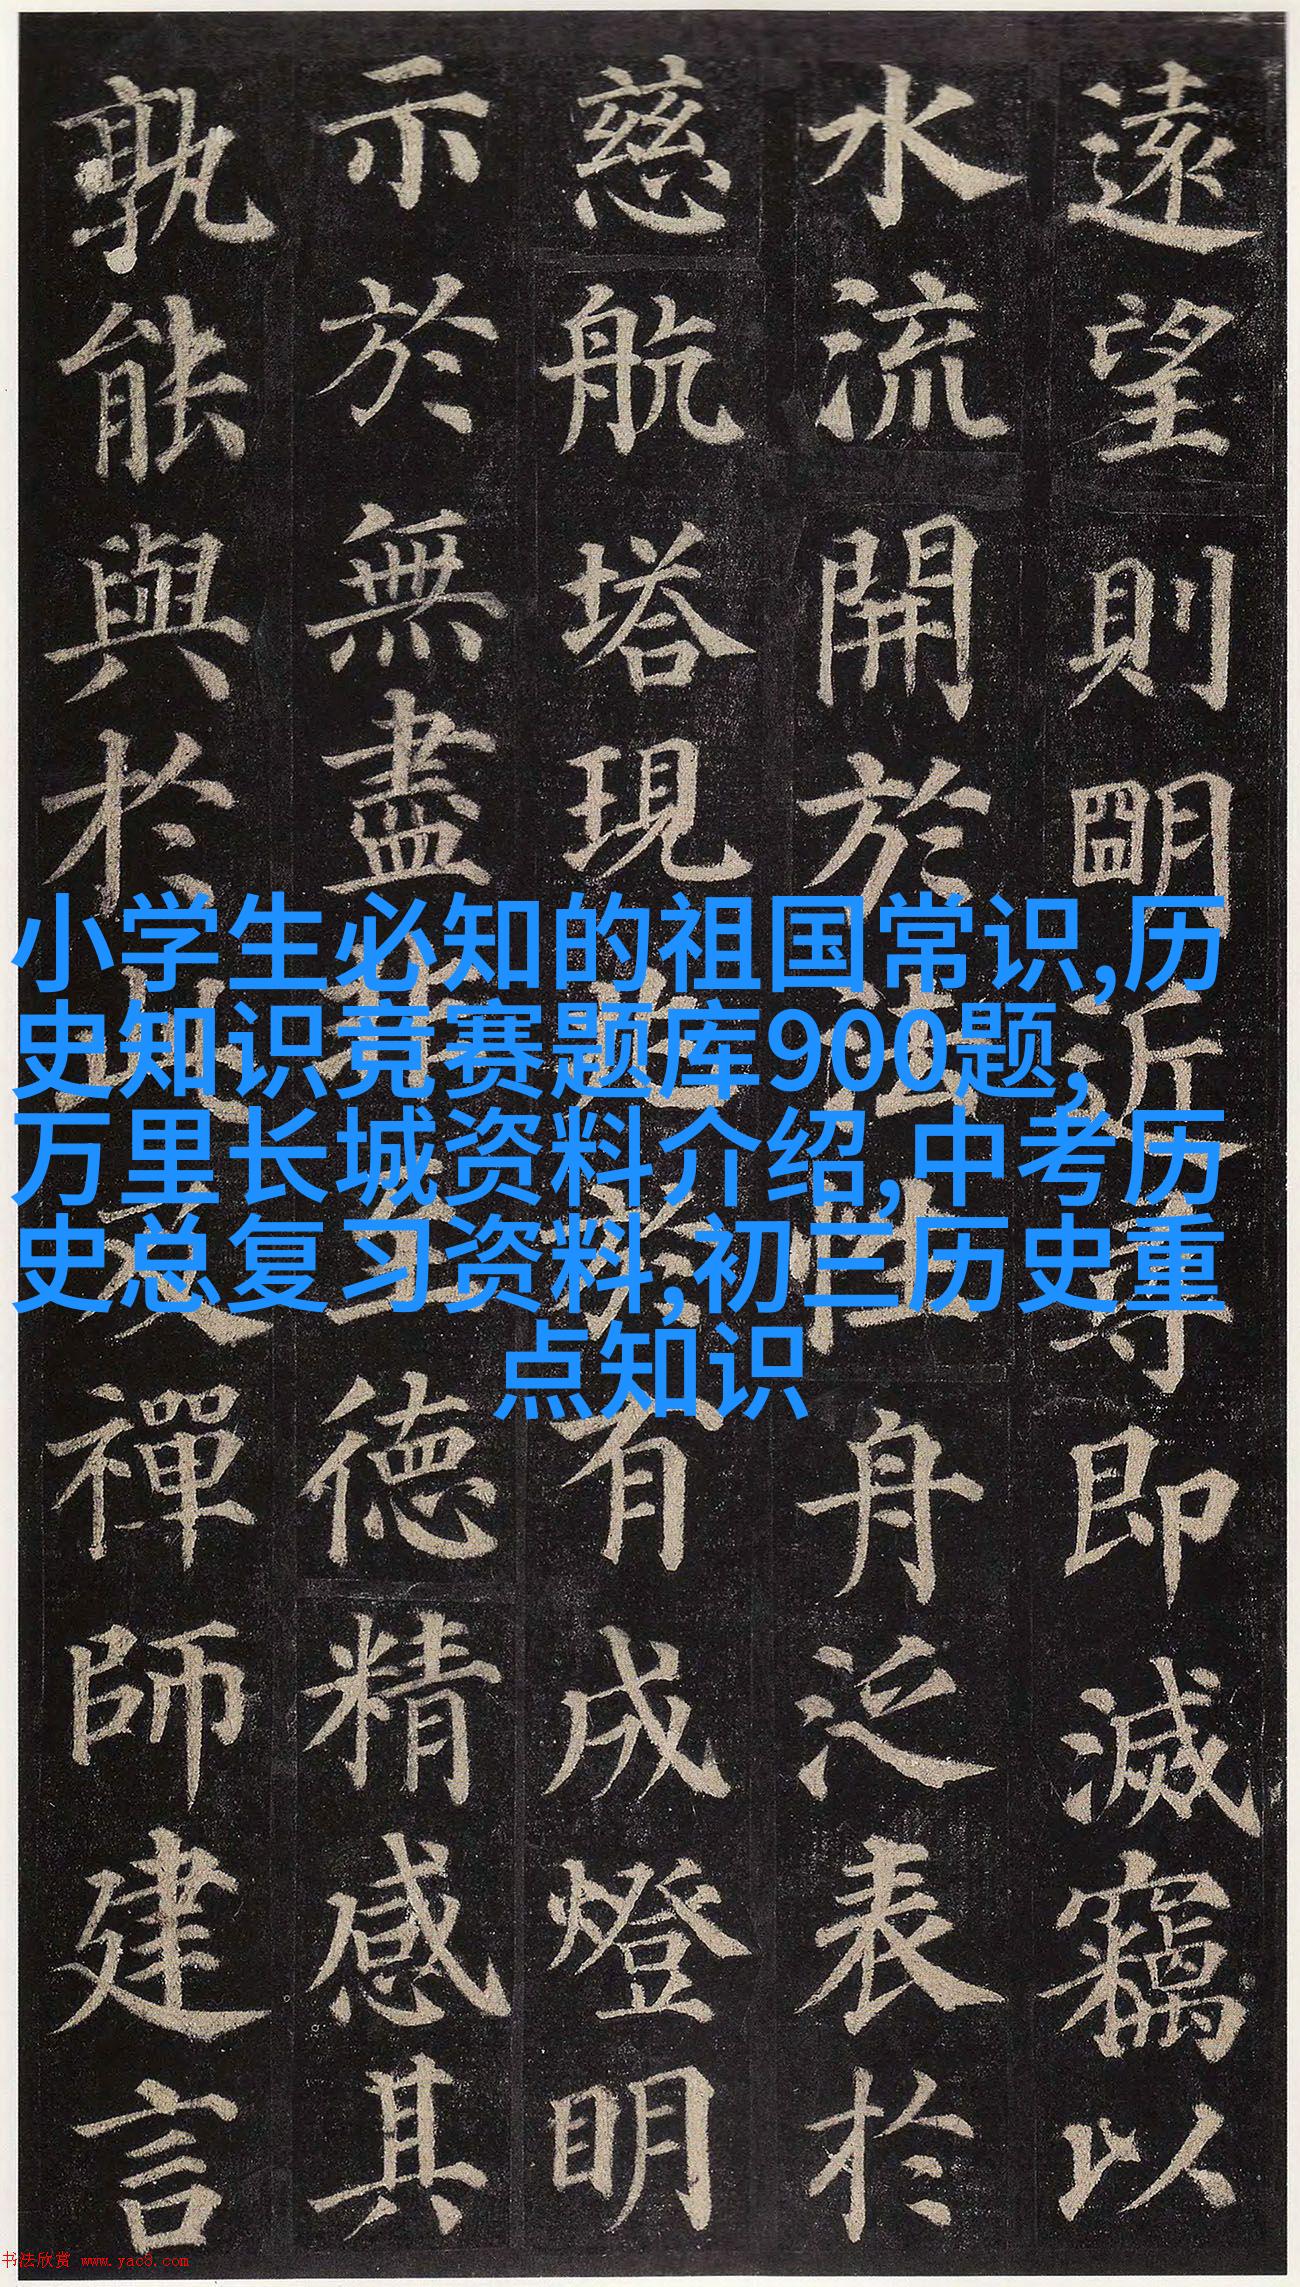 遠望則明近尋即滅竊以
水流開於法性舟泛表於
慈航塔現兆於有成燈明
示於無盡非至德精感其
孰能與於此及禪師建言
小学生必知的祖国常识,历
史知识竞赛题库900题,
万里长城资料介绍,中考历
史总复习资料,初三历史重
点知识
书法欣赏 www.yac8.com